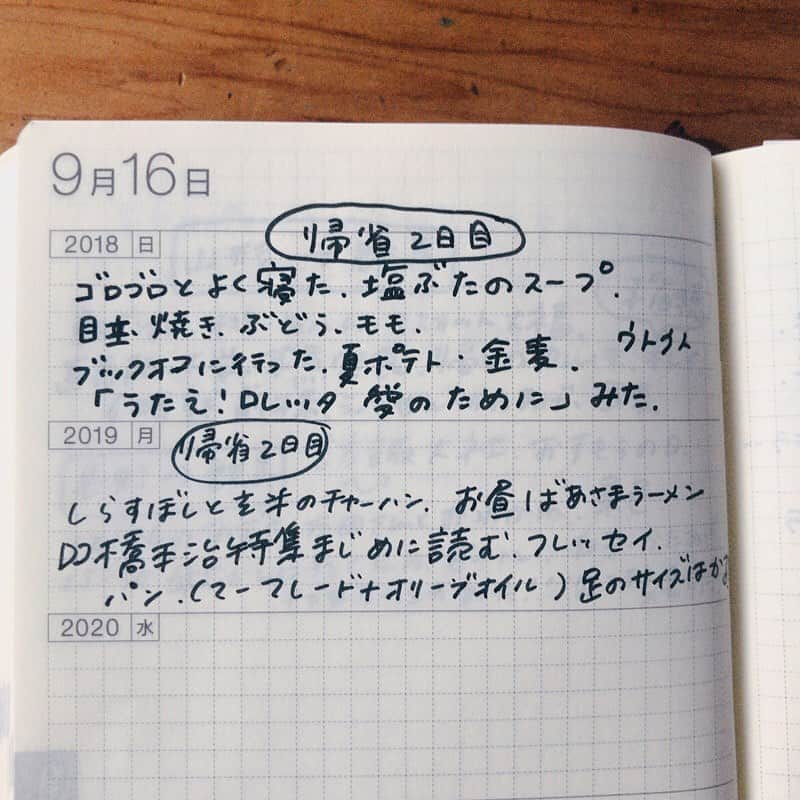 9月16日
2018 日
帰省2日目
ゴロゴロとよく寝た.塩ぶたのスープ.
目玉焼き.ぶどう.モモ.
ウトウト
ブックオフに行った.夏ポテト・金麦.
「うたえ!ロレッタ 愛のために」みた.
2019 月
帰省2日目
しらすぼしと玄米のチャーハン. お昼 ばあさまラーメン
DJ橋本治特集まじめに読む.フレッセイ.
パン.(マーマレード+オリーブオイル)足のサイズはかる
2020 水